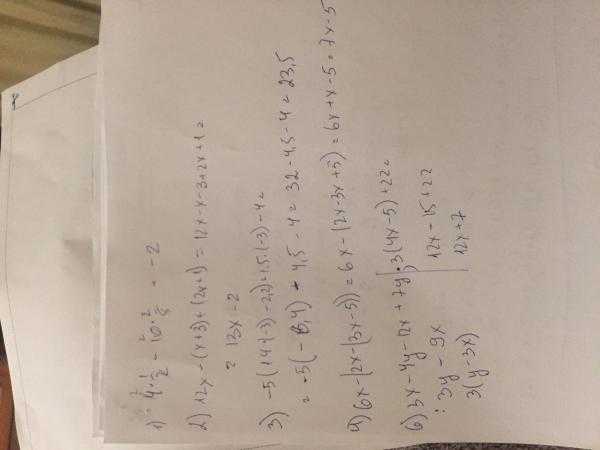 1) 4 · 1/2 - 10 · 2/5 = -2
2) 12x - (x+3) + (2x+1) = 12x - x - 3 + 2x + 1 =
= 13x - 2
3) -5(1,4(-3) - 2,2) + 1,5·(-3) - 4 =
= -5(-6,4) - 4,5 - 4 = 32 - 4,5 - 4 = 23,5
4) 6x - (2x - (3x - 5)) = 6x - (2x - 3x + 5) = 6x + x - 5 = 7x - 5
6) 3x - 4y - 12x + 7y 3(4x - 5) + 22 =
3y - 9x 12x - 15 + 22
3(y - 3x) 12x + 7